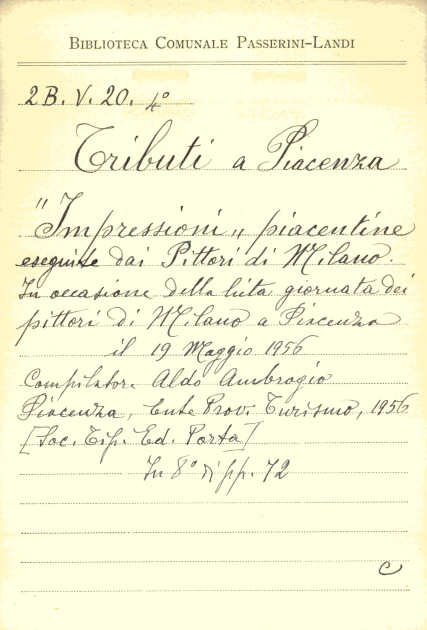 BIBLIOTECA COMUNALE PASSERINI-LANDI
2 B. V. 20. 4°
Tributi a Piacenza
"Impressioni„ piacentine
eseguite dai Pittori di Milano.
In occasione della lieta giornata dei
pittori di Milano a Piacenza
il 19 Maggio 1956
Compilatore Aldo Ambrogio
Piacenza, Ente Prov. Turismo, 1956
[Soc. Tip. Ed. Porta]
In 8° di pp. 72
C